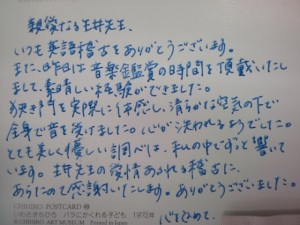 親愛なる玉井先生、
いつも英語稽古をありがとうございます。
また、昨日は音楽鑑賞の時間を頂戴いたし
まして、素晴しい経験ができました。
狭き門を実際に体感し、清らかな空気の下で
全身で音を受けました。心が洗われるようでした。
とても美しく優しい調べは、私の中でずっと響いて
います。玉井先生の愛情あふれる稽古に、
あらためて感謝いたします。ありがとうございました。
心をこめて、
CHIHIRO POSTCARD
いわさきちひろ バラにかくれる子ども 1972年
©CHIHIRO ART MUSEUM Printed in Japan